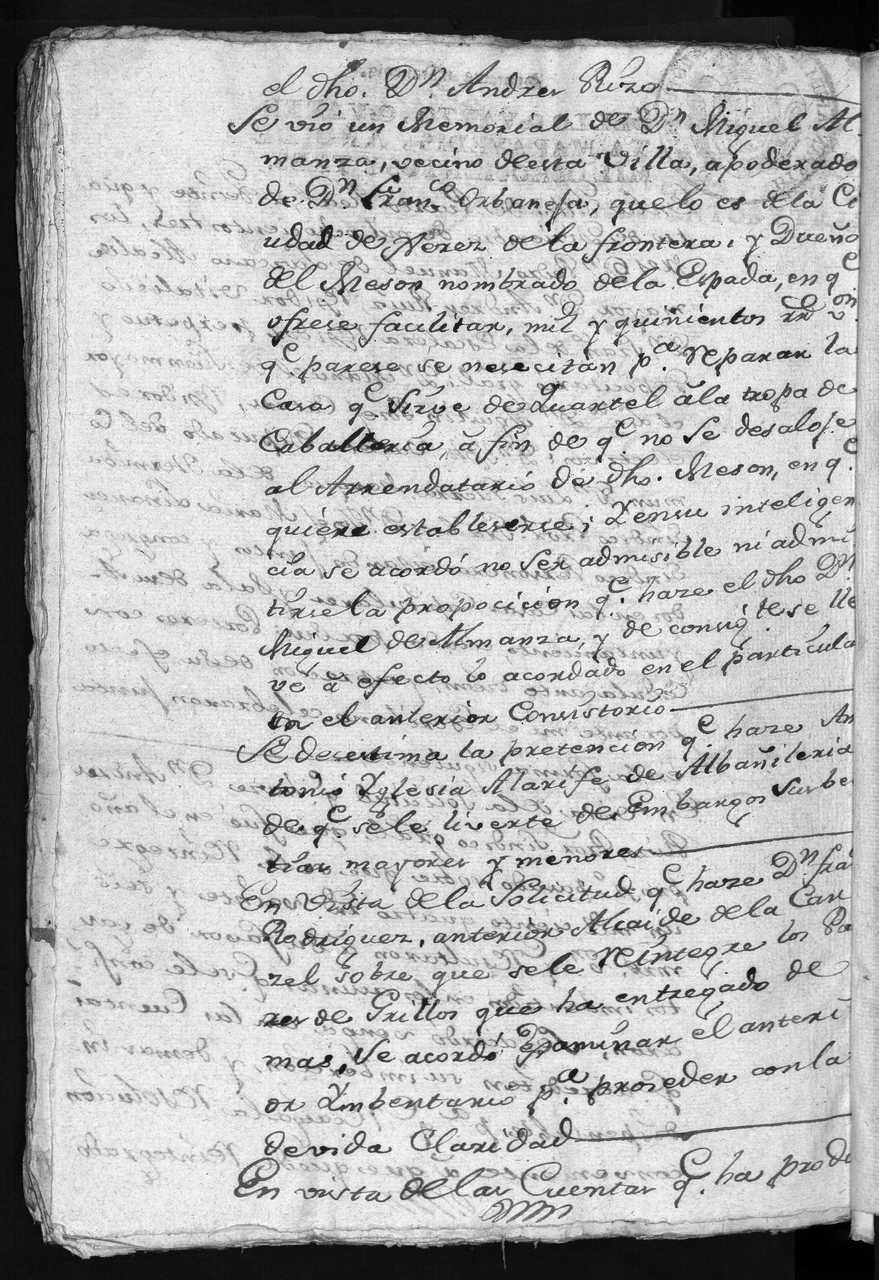 el dho. Dn. Andres Rizo
Se vió un Memorial de Dn Miguel Al-
manza, vecino de esta Villa, apoderado
de Dn Franco Orbaneja, que lo es de la Ci
udad de Xerez de la frontera, y Dueño
del Meson nombrado de la Espada, en qe
ofrese facilitar, mil y quinientos rrs von
qe. parese se nesecitan pa. reparar la
Casa qe. sirve de Quartel â la tropa de
Caballeria, â fin de qe. no se desaloje
al Arrendatario de dho. Meson, en qe.
quiere establecerse; Y en su inteligen
cia se acordó no ser admisible ni admi
tirse la proposicion qe. haze el dho Dn.
Miguel de Almanza, y de consigte se lle
ve â efecto lo acordado en el particula
en el anterior Consistorio
Se desestima la pretencion qe. haze An
tonio Yglesia Alarife de Albañileria
de qe. se le liverte de Embargos sus bes
tias mayores y menores
En vista de la Solicitud qe. haze Dn. Fra
Rodriguez, anterior Alcaide de la Car
zel sobre que se le reintegre los Pa
res de Grillos que ha entregado de
mas, se acordó examinar el anteri
or Ymbentario pa. proseder con la
devida Claridad
En vista de las Cuentas qe. ha prodi